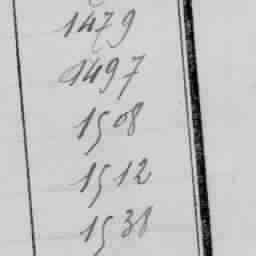 1479
1497
1508
1512
1538